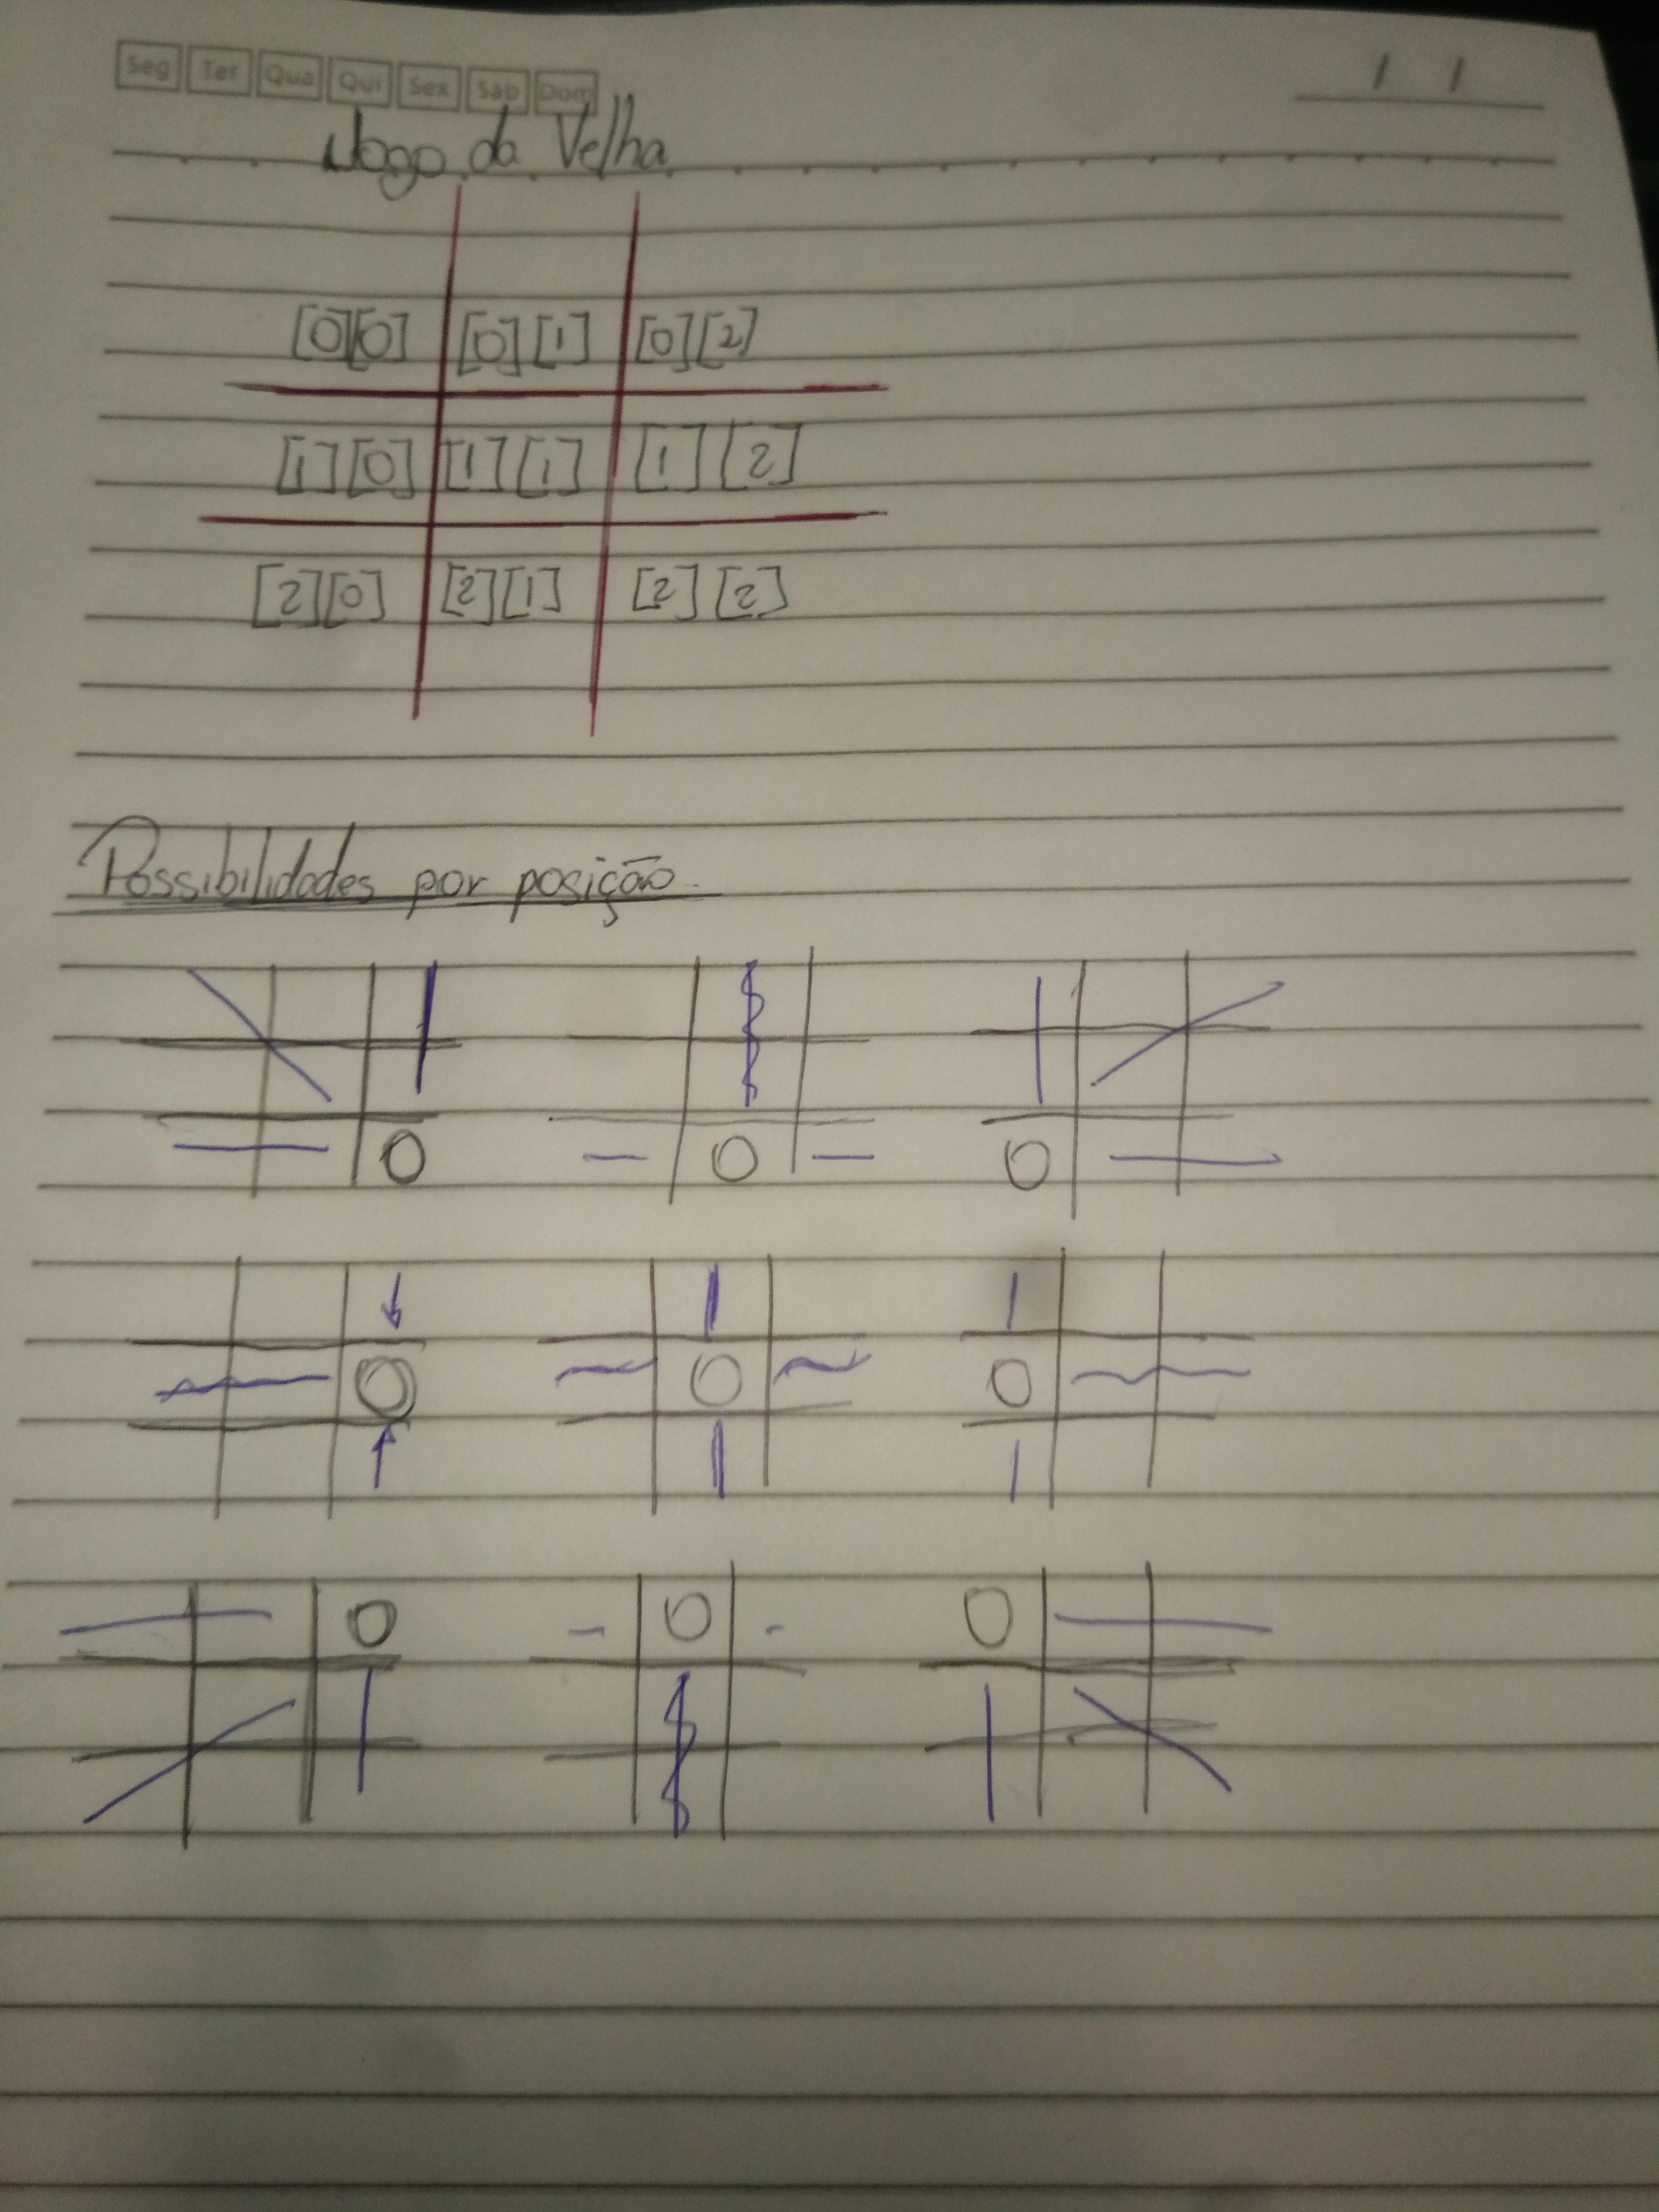 Seg Ter Qua Qui Sex Sáb Dom
/ /
Jogo da Velha
[0][0] [0][1] [0][2]
[1][0] [1][1] [1][2]
[2][0] [2][1] [2][2]
Possibilidades por posição.
O O O
O O O
O O O